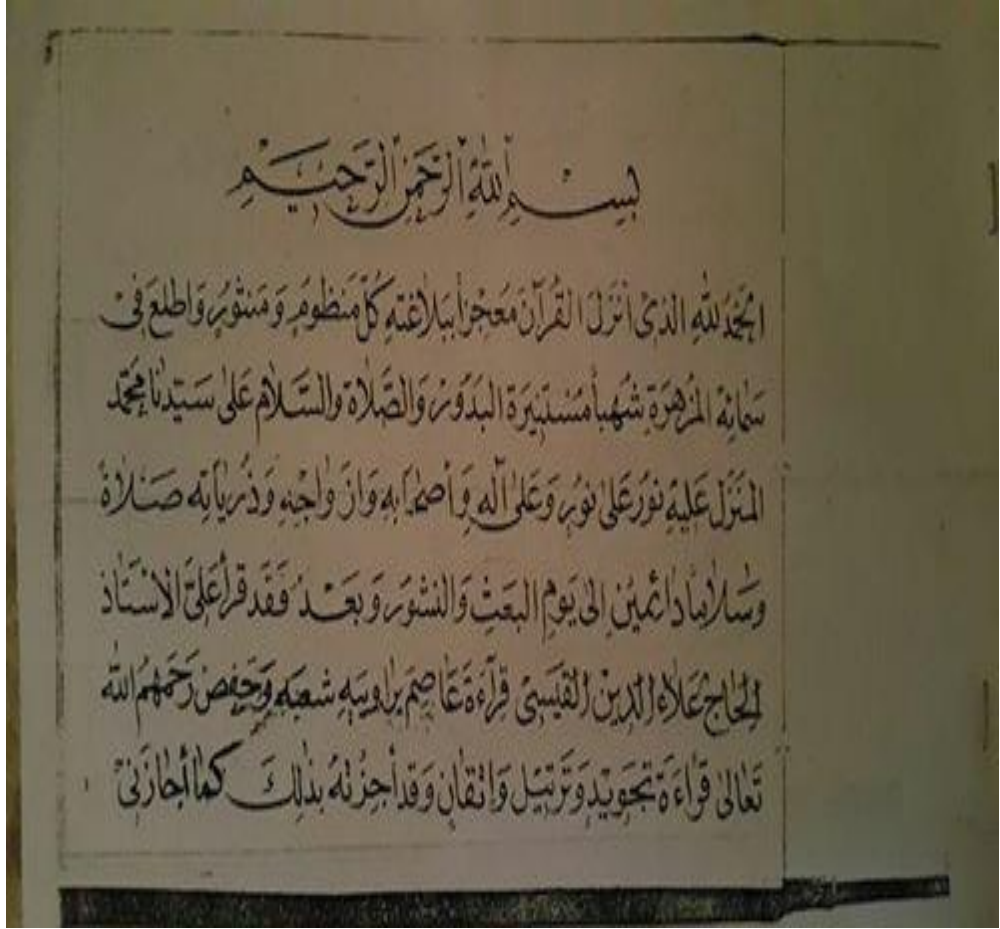 بسم الله الرحمن الرحيم
الحمد لله الذي أنزل القرآن معجزاً ببلاغته كل منظوم ومنثور واطلع في
سمائه المزهرة شهباً مستنيرة البدور والصلاة والسلام على سيدنا محمد
المنزل عليه نور على نور وعلى آله وأصحابه وازواجه وذرياته صلاة
وسلاماً دائمين إلى يوم البعث والنشور وبعد فقد قرأ علي الاستاذ
الحاج علاء الدين القيسي قراءة عاصم براوييه شعبه وحفص رحمهم الله
تعالى قراءة تجويد وترتيل واتقان وقد أجزته بذلك كما أجازني